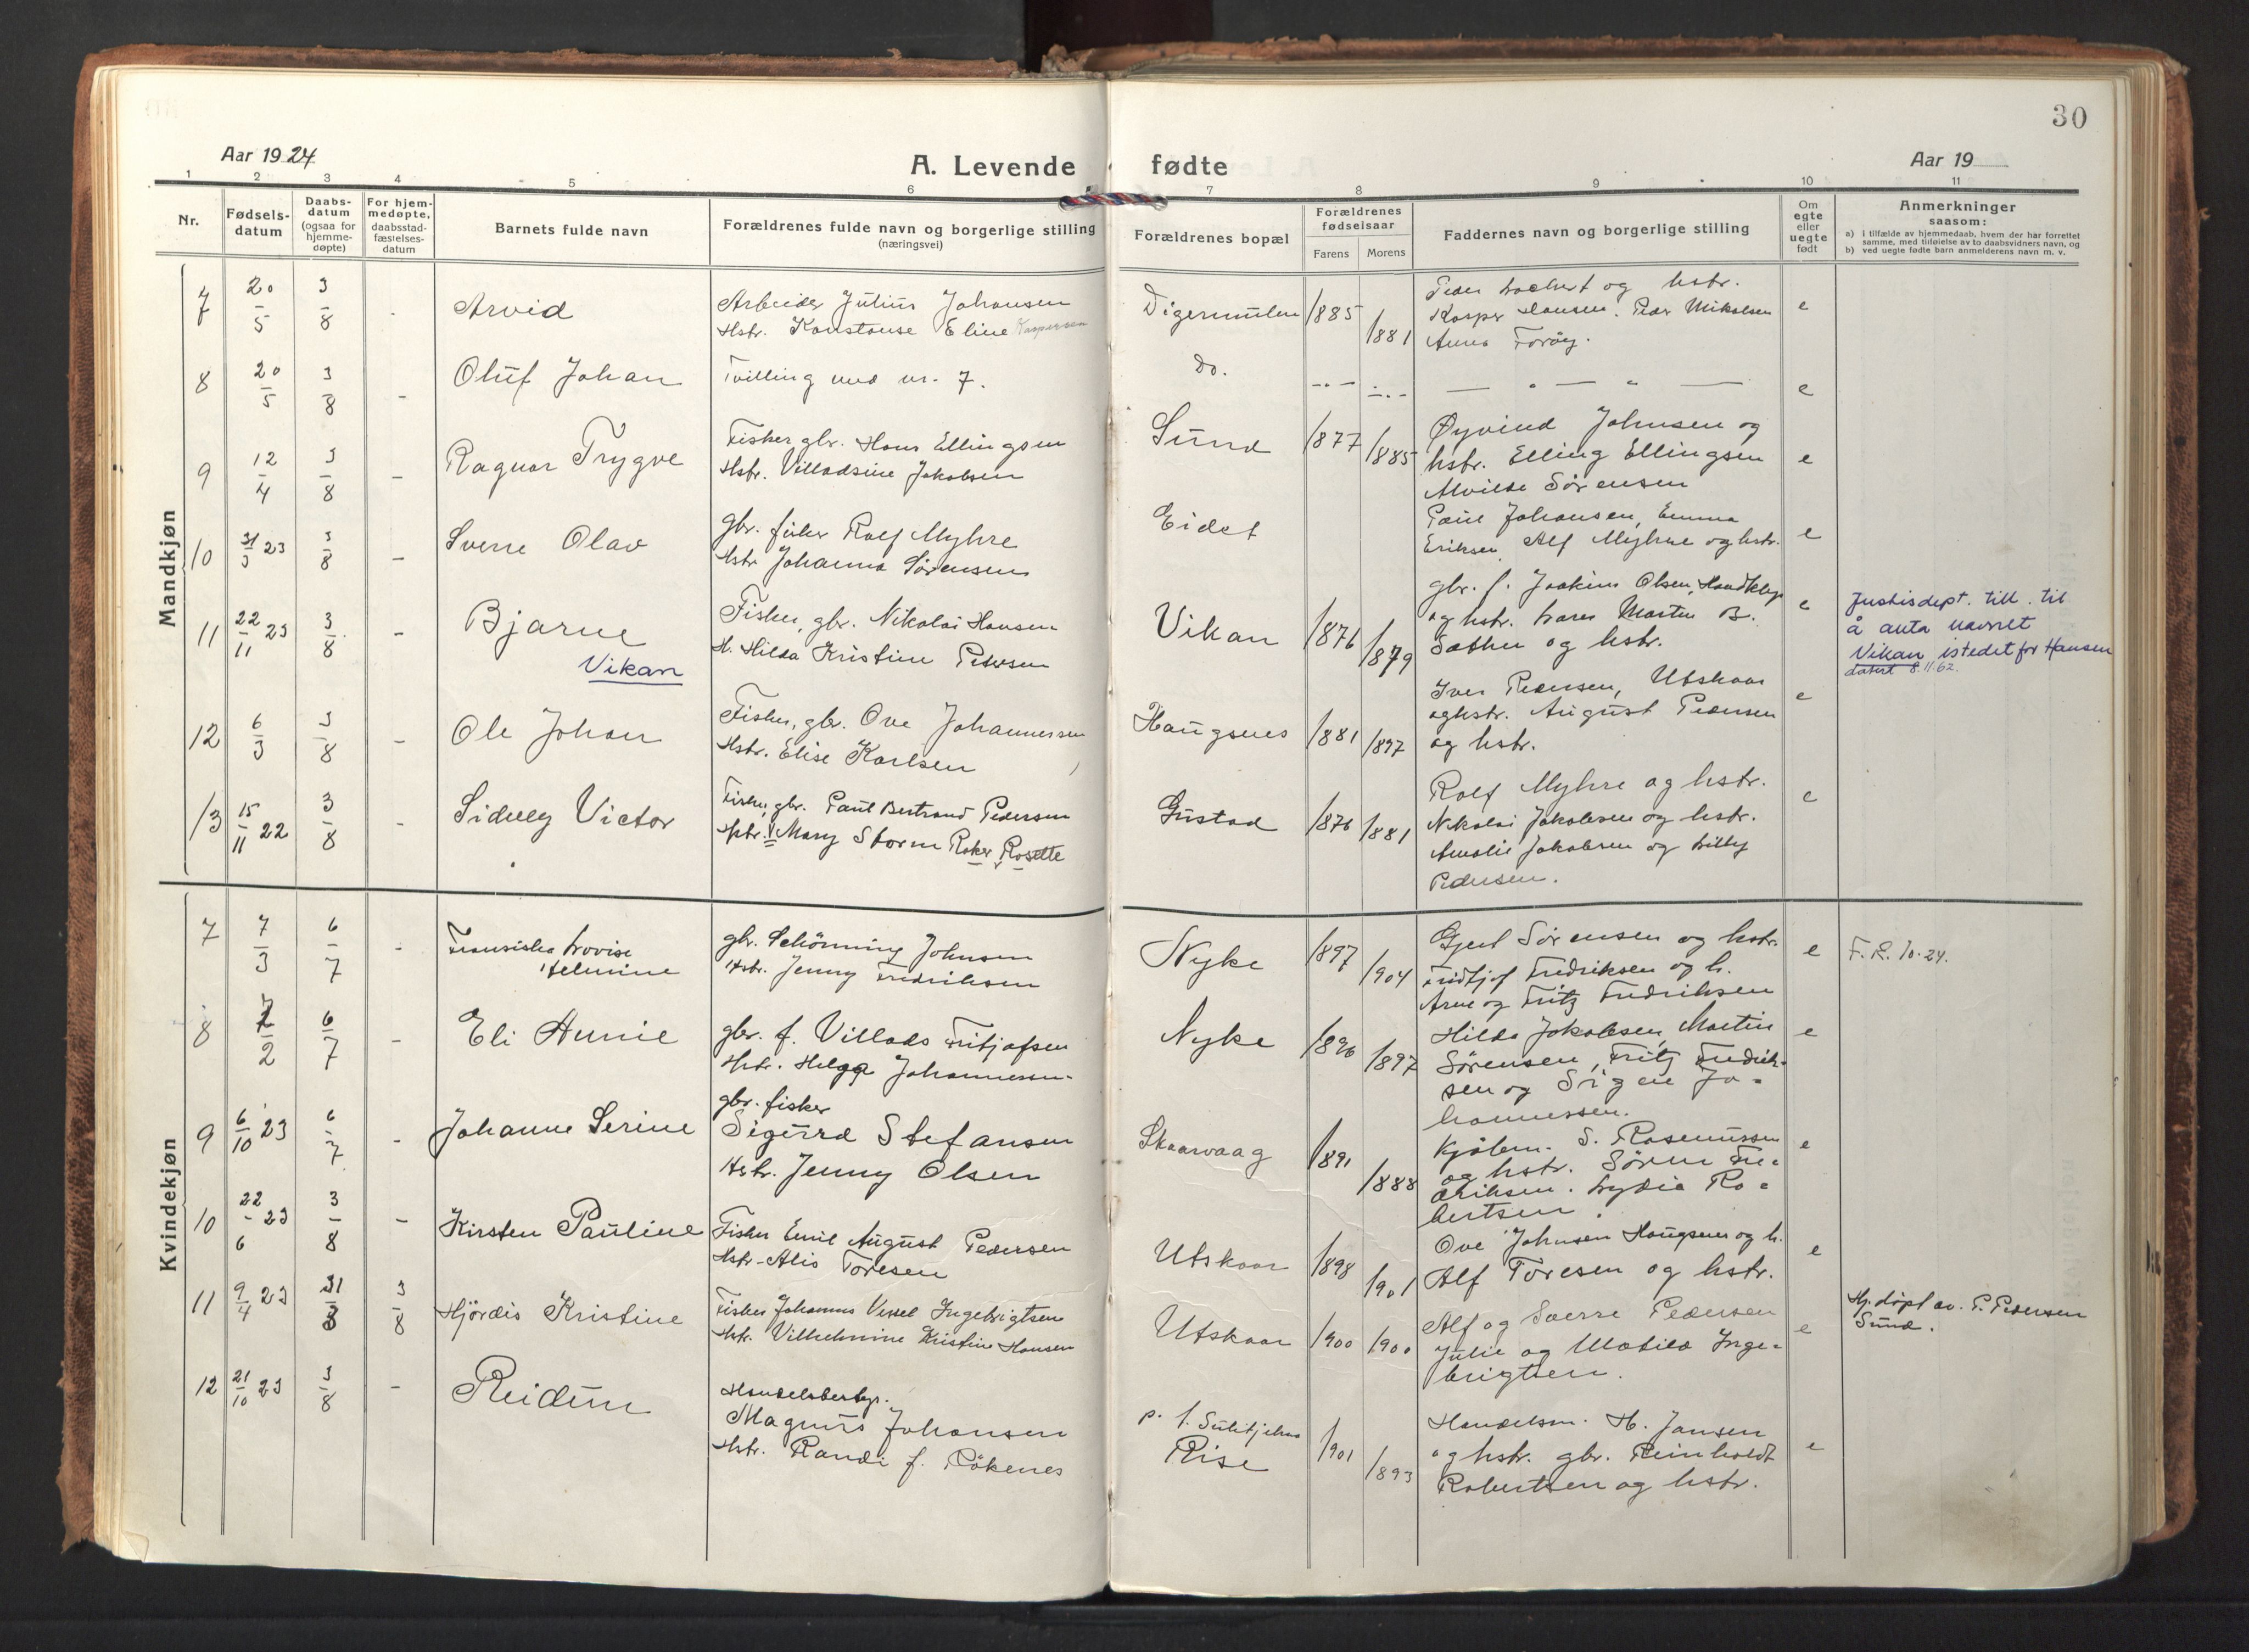 30
Aar 1924
A. Levende fødte
Aar 19
1 2 3 4 5 6 7 8 9 10 11
Nr.
Fødsels-
datum
Daabs-
datum
(ogsaa for
hjemme-
døpte)
For hjem-
medøpte,
daabsstad-
fæstelses-
datum
Barnets fulde navn
Forældrenes fulde navn og borgerlige stilling
(næringsvei)
Forældrenes bopæl
Forældrenes
fødselsaar
Farens Morens
Faddernes navn og borgerlige stilling
Om
egte
eller
uegte
født
Anmerkninger
saasom:
a) i tilfælde av hjemmedaab, hvem der har forrettet
samme, med tilføielse av to daabsvidners navn, og
b) ved uegte fødte barn anmelderens navn m. v.
Mandkjøn
7 20/5 3/8 - Arvid
Arbeider Julius Johansen
Hstr. Konstanse Eline Kaspersen
Digermulen 1885 1881
Peder og hstr.
Kasper Hansen. Peder Mikalsen
Anna
e
8 20/5 3/8 - Oluf Johan
Tvilling med nr. 7.
Do.
e
9 12/4 3/8 - Ragnar Trygve
Fisker gbr. Hans Ellingsen
Hstr. Villadsine Jakobsen
Sund 1877 1885
Øyvind Johnsen og
hstr. Elling Ellingsen
Alvilde Sørensen
e
10 31/3 23 3/8 - Sverre Olav
gbr. fisker Rolf Myhre
Hstr Johanna Sørensen
Eidet
Paul Johansen, Emma
Eriksen, Alf Myhre og hstr.
e
11 22/11 23 3/8 - Bjarne
Vikan
Fisker, gbr. Nikolai Hansen
H. Hilda Kristine Pedersen
Vikan 1876 1879
gbr. f. Joakim Olsen,
og hstr. Martin B.
Sæther og hstr.
e
Justisdept. till. til
å anta navnet
Vikan istedet for Hansen
datert 8.11.62.
12 6/3 3/8 - Ole Johan
Fisker, gbr. Ove Johannessen
Hstr. Elise Karlsen
Haugsnes 1881 1897
Iver Pedersen, Utskaar
og hstr. August Pedersen
og hstr.
e
13 15/11 22 3/8 - Victor
Fisker, gbr. Paul Bertrand Pedersen
Hstr. Mary Storm Roker Rosette
Gustad 1876 1881
Rolf Myhre og hstr.
Nikolai Jakobsen og hstr.
Amalie Jakobsen og Lilly
Pedersen.
e
Kvindekjøn
7 7/3 6/7 - Fransiska Lovise
Helmine
gbr. Schönning Johnsen
Hstr. Jenny Fredriksen
Nyke 1897 1904
Gjert Sørensen og hstr.
Fridtjof Fredriksen og h.
Arne og Fritz Fredriksen
e
F. R. 10. 24.
8 2 6/7 - Eli Annie
gbr. f. Villads Fritjofsen
Hstr. Helga Johannessen.
Nyke 1896 1897
Hilda Jakobsen, Martin
Sørensen, Fritz Fredrik-
sen og Signe Jo-
hannessen.
e
9 6/10 23 6/7 - Johanne Serine
gbr. fisker
Sigurd Stefansen
Hstr. Jenny Olsen
Skaarvaag 1891 1888
Kjøbm. S. Rasmussen
og hstr. Søren Fre-
driksen. Lydia Ro-
bertsen.
e
10 22/6 23 3/8 - Kirsten Pauline
Fisker Emil August Pedersen
Hstr. Alis Toresen
Utskaar 1898 1901
Ove Johnsen Haugsnes og h.
Alf Toresen og hstr.
e
11 9/4 23 31/3 3/8 Hjördis Kristine
Fisker Johannes Vessel Ingebrigtsen
Hstr. Vilhelmine Kristine Hansen
Utskaar 1900 1900
Alf og Sverre Pedersen
Julie og Matilda Inge-
brigtsen.
e
Hj. døpt av. P. Pedersen
Sund.
12 21/10 23 3/8 - Reidun
Handelsbestyr.
Magnus Johansen
Hstr. Randi f. Rökenes
p. t. Sulitjelma
Rise 1901 1893
Handelsm. H. Jansen
og hstr. gbr. Reinholdt
Robertsen og hstr.
e